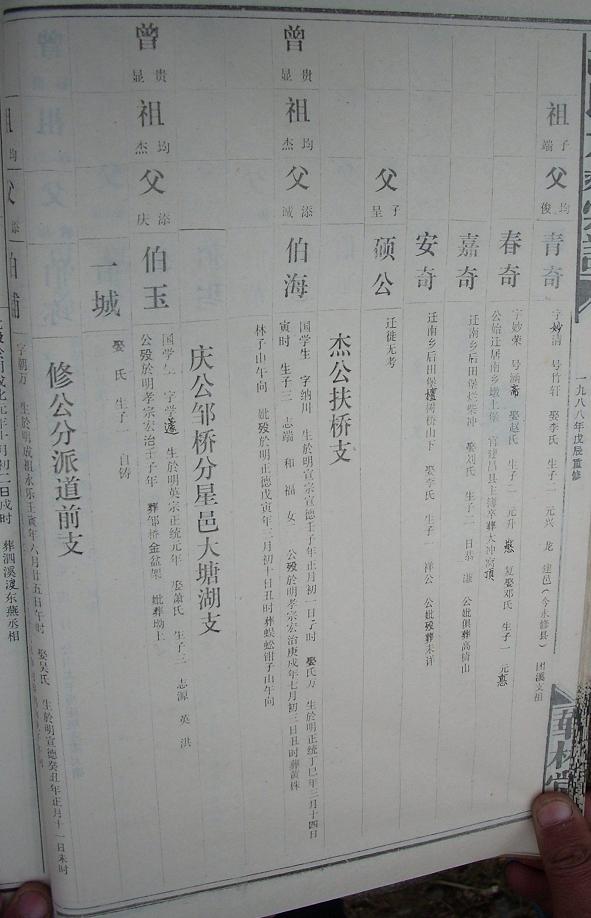 一九八八年戊辰重修
華林堂
祖 子端
父 均俊
青奇
字妙清 号竹轩 娶李氏 生子二 元兴 龙 建邑(今永修县) 团溪支祖
春奇
字妙荣 号涵斋 娶赵氏 生子二 元升 愍 复娶邓氏 生子一 元惠
公始迁居南乡墩上堡 官建昌县主簿卒葬大冲窝顶
嘉奇
迁南乡后田堡烂柴冲 娶刘氏 生子二 日恭 谦 公妣俱葬高椅山
安奇
迁南乡后田堡檀树桥山下 娶李氏 生子一 祥公 公妣殁葬未详
父 子呈
硕公
迁徙无考
杰公扶桥支
曾 贵显
祖 均杰
父 添诚
伯海
国学生 字纳川 生於明宣宗宣德壬子年正月初一日子时 娶熊氏万 生於明正统丁巳年三月十四日
寅时 生子三 志端 和 福 女 公殁於明孝宗宏治庚戌年七月初三日丑时葬黄株
林子山午向 妣殁於明正德戊寅年三月初十日丑时葬蜈蚣钳子山午向
庆公邹桥分星邑大塘湖支
曾 贵显
祖 均杰
父 添庆
伯玉
国学生 字学遂 生於明英宗正统元年 娶萧氏 生子三 志源 英 洪
公殁於明孝宗宏治壬子年 葬邹桥金盆架 妣葬坳上
一城
娶 氏 生子一 自铸
修公分派道前支
祖 均
父 添
伯
字朝万 生於明成祖永乐壬寅年六月廿五日午时 娶吴氏 生於明宣德癸丑年正月十一日未时
公殁公明成化元年十月初二日戌时 葬泗溪浚东燕丞相